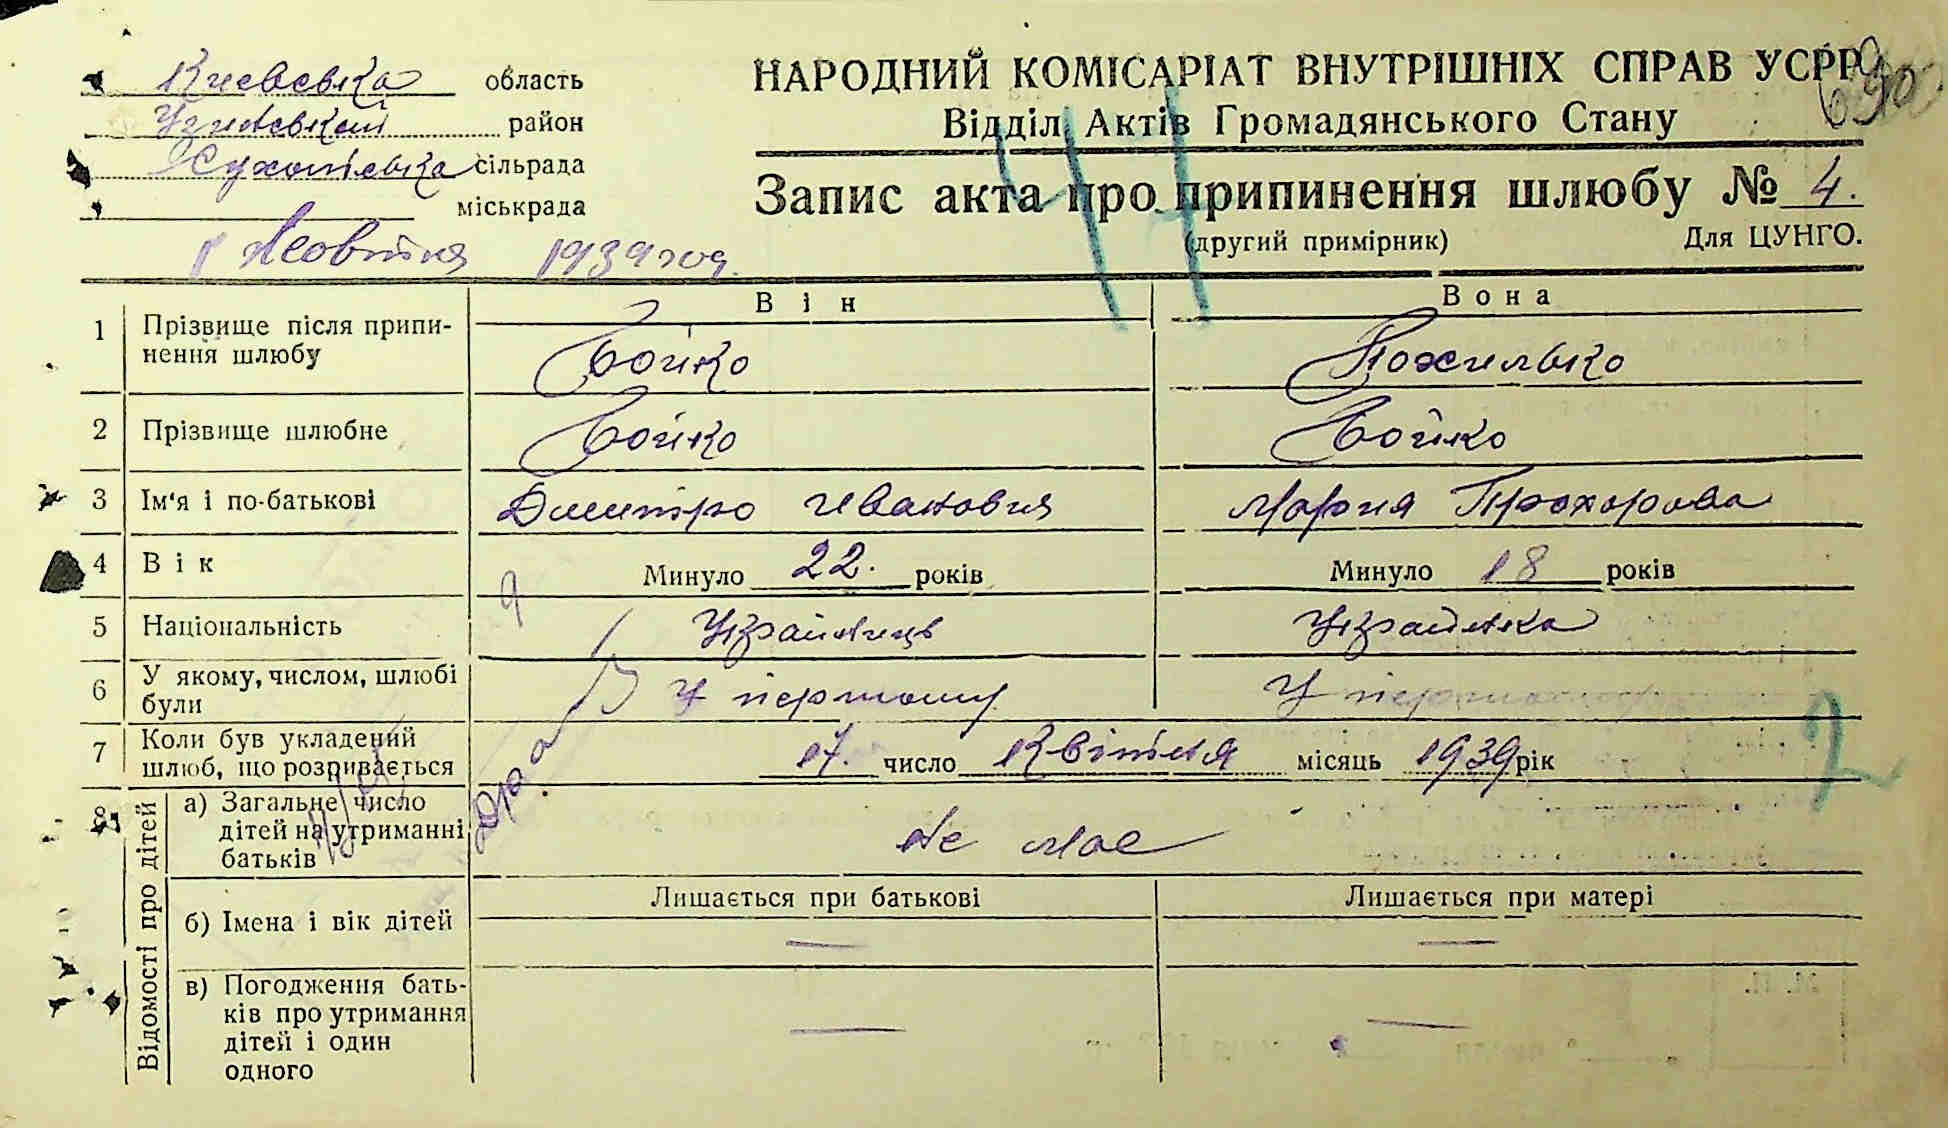 Киевська область
район
сільрада
міськрада
НАРОДНИЙ КОМІСАРІАТ ВНУТРІШНІХ СПРАВ УСРР
Відділ Актів Громадянського Стану
Запис акта про припинення шлюбу № 4.
(другий примірник) Для ЦУНГО.
1 Жовтня 1939 год.
Він Вона
1 Прізвище після припи-
нення шлюбу Бойко Похилько
2 Прізвище шлюбне Бойко Бойко
3 Ім'я і по-батькові Дмитро Иванович Мария Прохорова
4 Вік Минуло 22. років Минуло 18 років
5 Національність Українець Українка
6 У якому, числом, шлюбі
були У першому У першому
7 Коли був укладений
шлюб, що розривається 17. число Квітня місяць 1939 рік
8 Відомості про дітей
а) Загальне число
дітей на утриманні
батьків Не мае
Лишається при батькові Лишається при матері
б) Імена і вік дітей — —
в) Погодження бать-
ків про утримання
дітей і один
одного — —